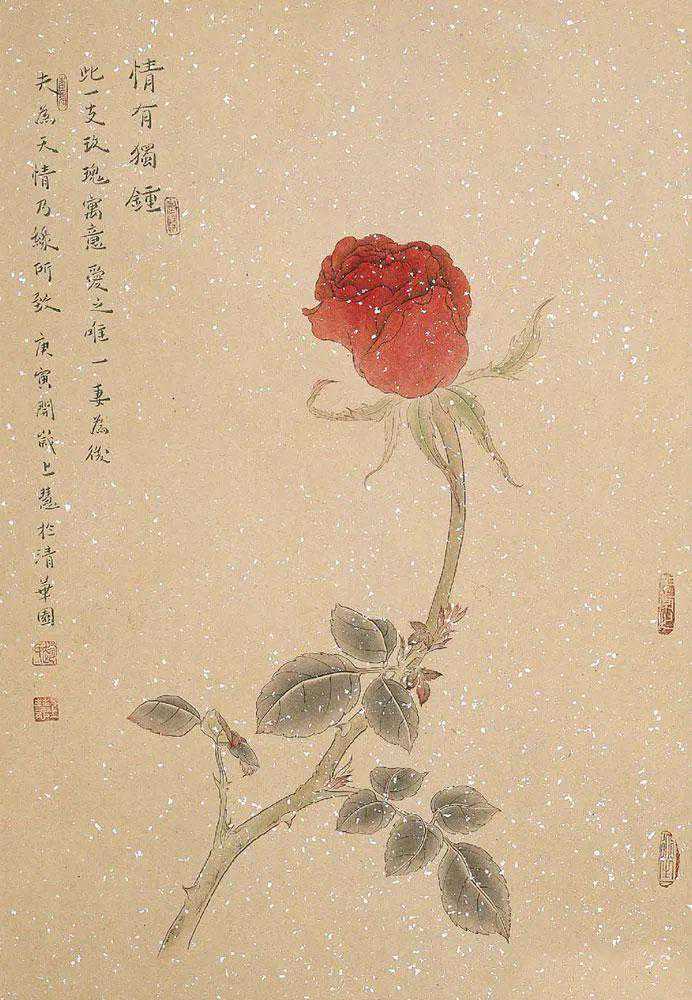 情有獨鍾
此一支玫瑰寓意愛之唯一妻為後
夫為天情乃緣所致 庚寅閏歲上慧於清華園